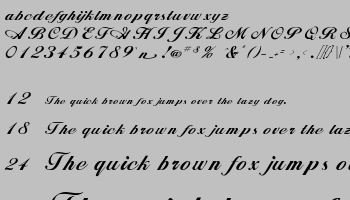 abcdefghijklmnopqrstuvwxyz
ABCDEFGHIJKLMNOPQRS
0123456789 !@#$% &
12 The quick brown fox jumps over the lazy dog.
18 The quick brown fox jumps over the laz
24 The quick brown fox jumps o